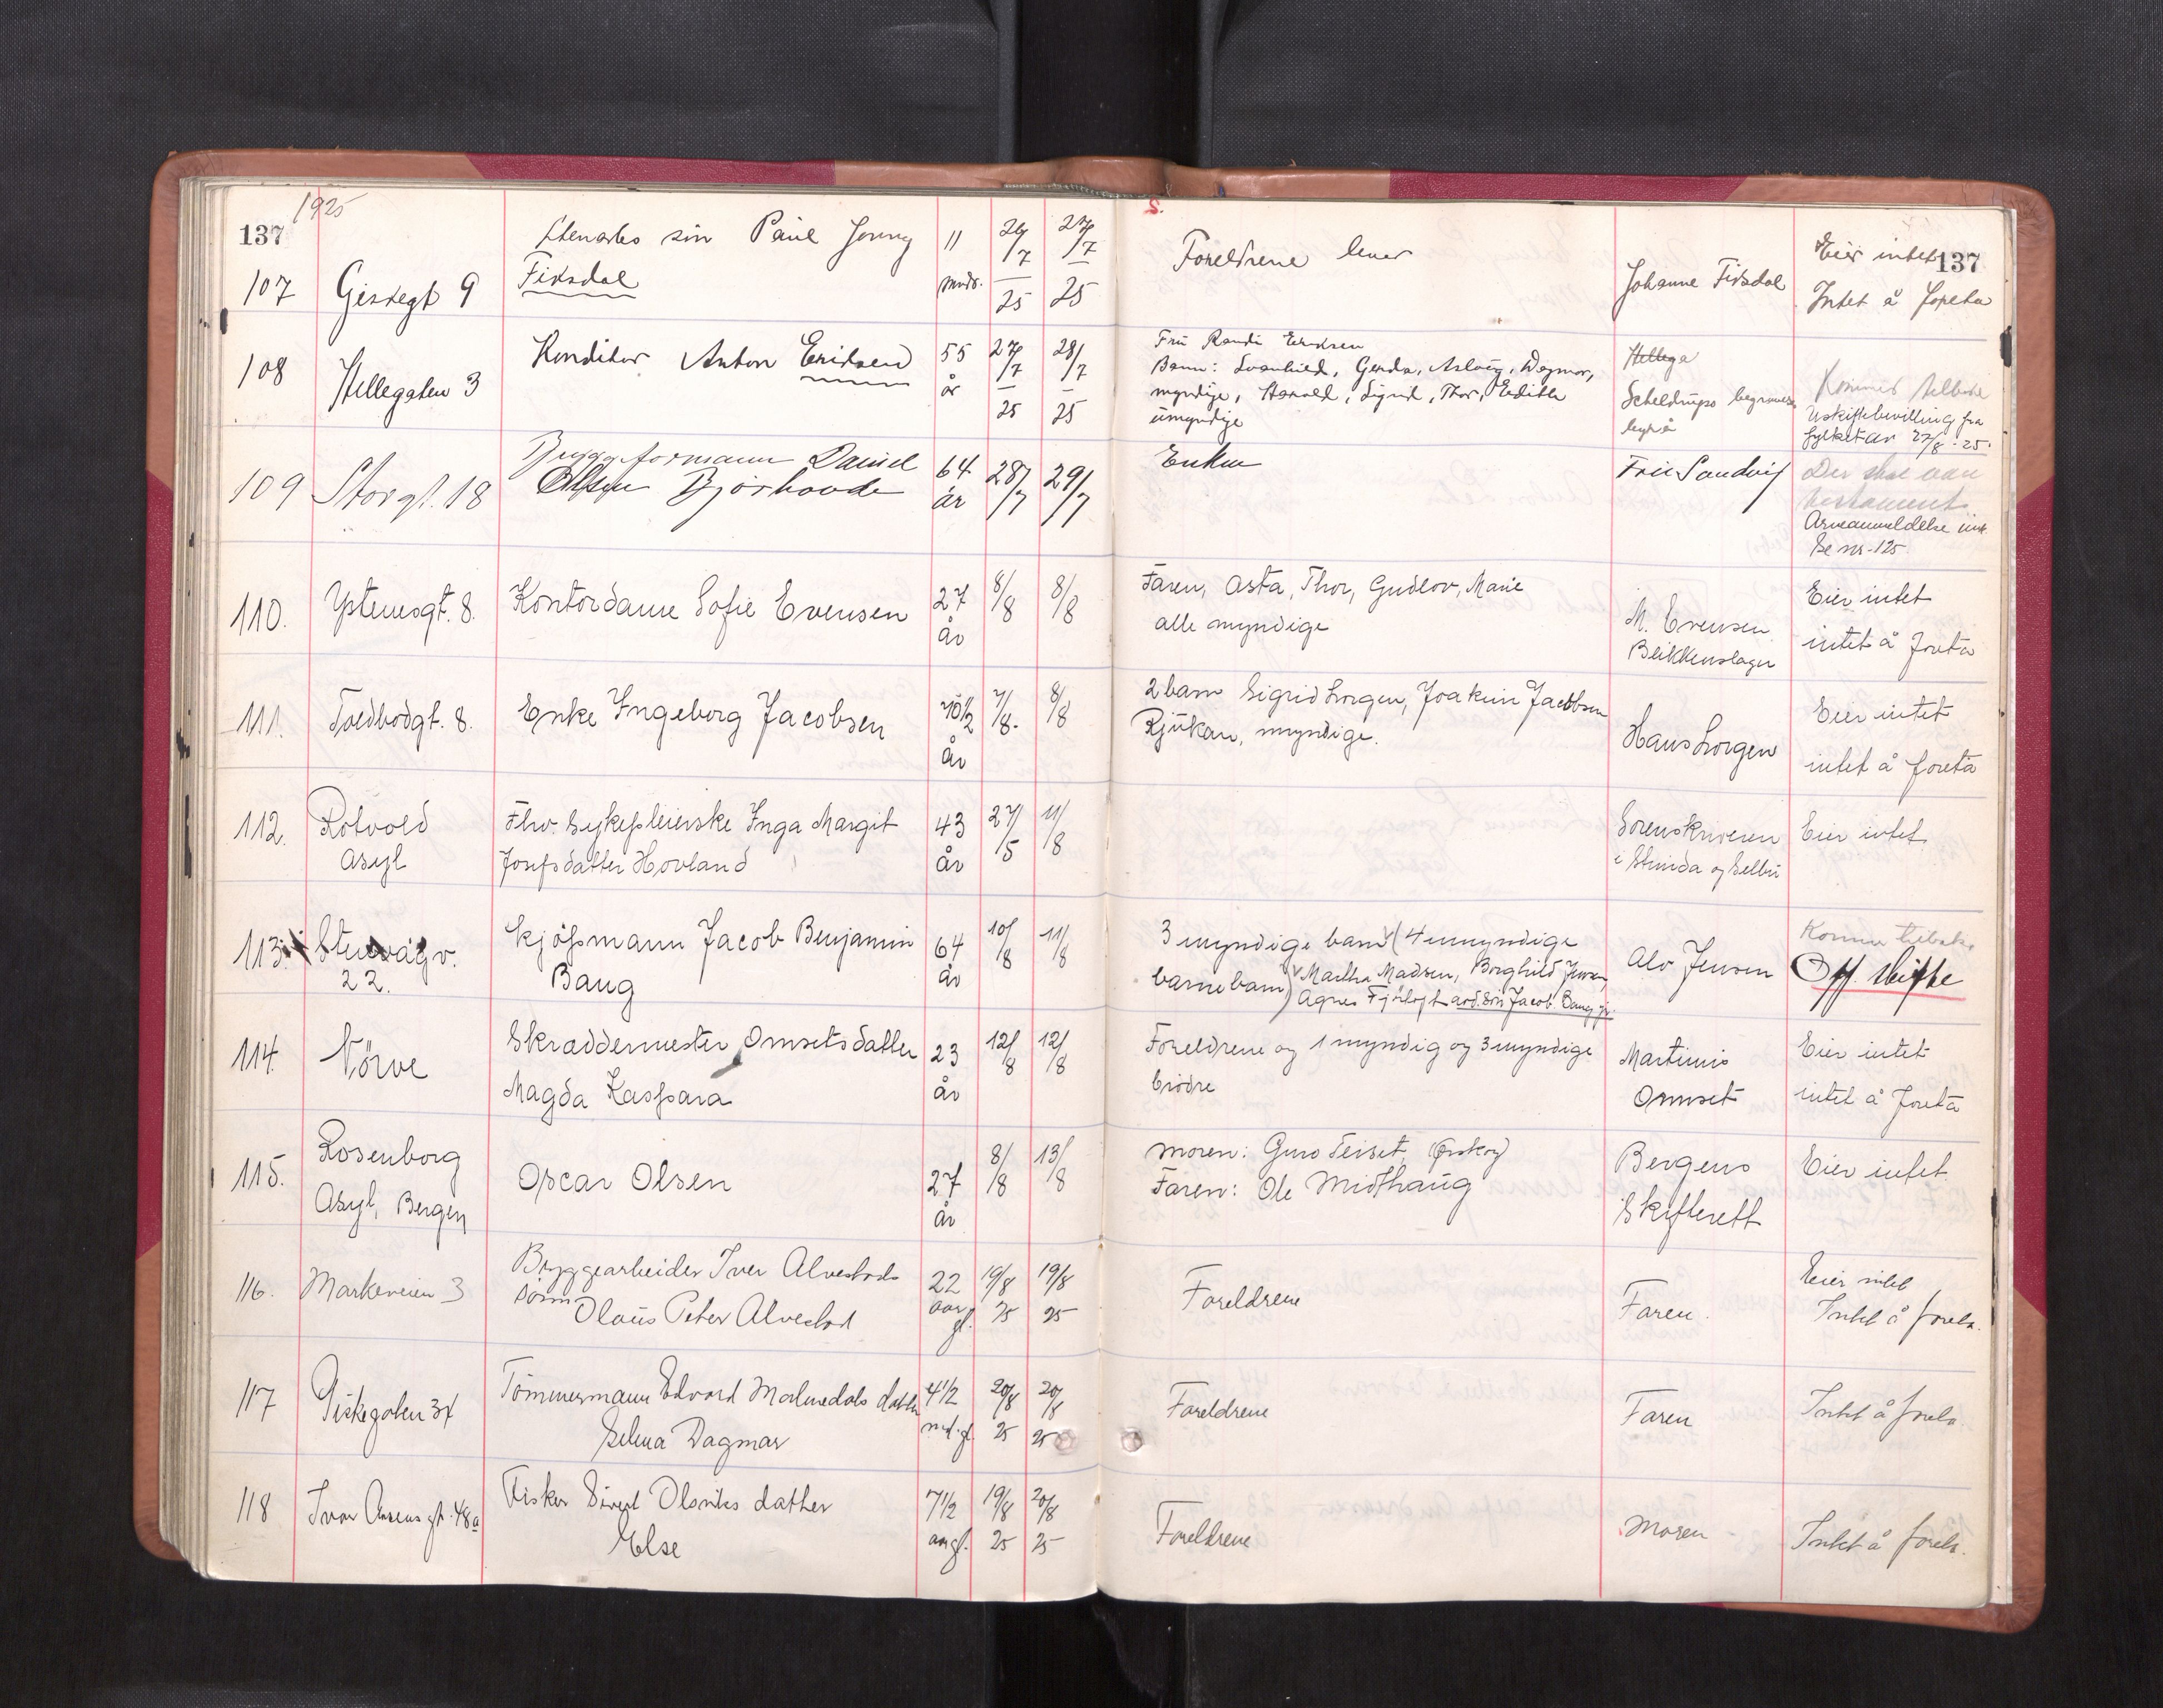 137
1925
107
Giskegt 9
sin Paul Jonny
Fiksdal
11
mndr.
26/7
25
27/7
25
S.
Foreldrene lever
Johanne Fiksdal
Eier intet
137
Intet å foreta
108
Hellegaten 3
Konditor Anton Eriksen
55
år
27/7
25
28/7
25
Fru Randi Eriksen
Barn: Svanhild, Gerda, Aslaug, Dagmar,
myndige, Harald, Sigrid, Thor, Edith
umyndige
Hellega
Scheldrups begravelses
byrå
Kommer tilbake
Uskiftebevilling fra
fylket av 27/8-25.
109
Storgt. 18
Byggeformann Daniel
Olsen Bjørhovde
64
år
28/7
29/7
Enken
Fru Sandvig
Der skal være
testament
Arveanmeldelse
Se nr. 125
110.
Ystenesgt. 8.
Kontordame Sofie Evensen
27
år
8/8
8/8
Faren, Asta, Thor, Gudlov, Marie
alle myndige
M. Evensen
Blikkenslager
Eier intet
intet å foreta
111.
Toldbodgt. 8.
Enke Ingeborg Jacobsen
70 1/2
år
7/8.
8/8
2 barn Sigrid Lorgen, Joakim Jacobsen
Rjukan, myndige.
Hans Lorgen
Eier intet
intet å foreta
112.
Rotvold
asyl
Fhv. sykepleierske Inga Margit
Josefsdatter Hovland
43
år
27/5
11/8
Sorenskriveren
i Strinda og Selbu
Eier intet
113.
Stenvågv.
22.
Kjøpmann Jacob Benjamin
Baug
64
år
10/8
11/8
3 myndige barn (4 umyndige
barnebarn) Martha Madsen, Borghild Jensen,
Agnes Fjørtoft avd. sön Jacob Baug jr.
Alv Jensen
Kommer tilbake
Off. skifte
114.
Nörve
Skreddermester Omsetsdatter
Magda Kaspara
23
år
12/8
12/8
Foreldrene og 1 myndig og 3 myndige
brödre
Martinus
Omset
Eier intet
intet å foreta
115.
Rosenborg
Asyl, Bergen
Oscar Olsen
27
år
8/8
13/8
Moren: Guro Teiset, (Ørskog)
Faren: Ole Midthaug
Bergens
Skifterett
Eier intet
116.
Markeveien 3
Bryggearbeider Iver Alvestads
sönn
Olaus Peter Alvestad
22
aar
gl.
19/8
25
19/8
25
Foreldrene
Faren.
Eier intet
Intet å foreta.
117
Giskegaten 34
Tömmermann Edvard Malmedals datter
Selma Dagmar
4 1/2
md. gl.
20/8
25
20/8
25
Foreldrene
Faren
Intet å foreta
118
Ivar Aasens gt. 48a
Fisker Sivert Olsviks datter
Else
7 1/2
aar gl.
19/8
25
20/8
25
Foreldrene
Moren
Intet å foreta.